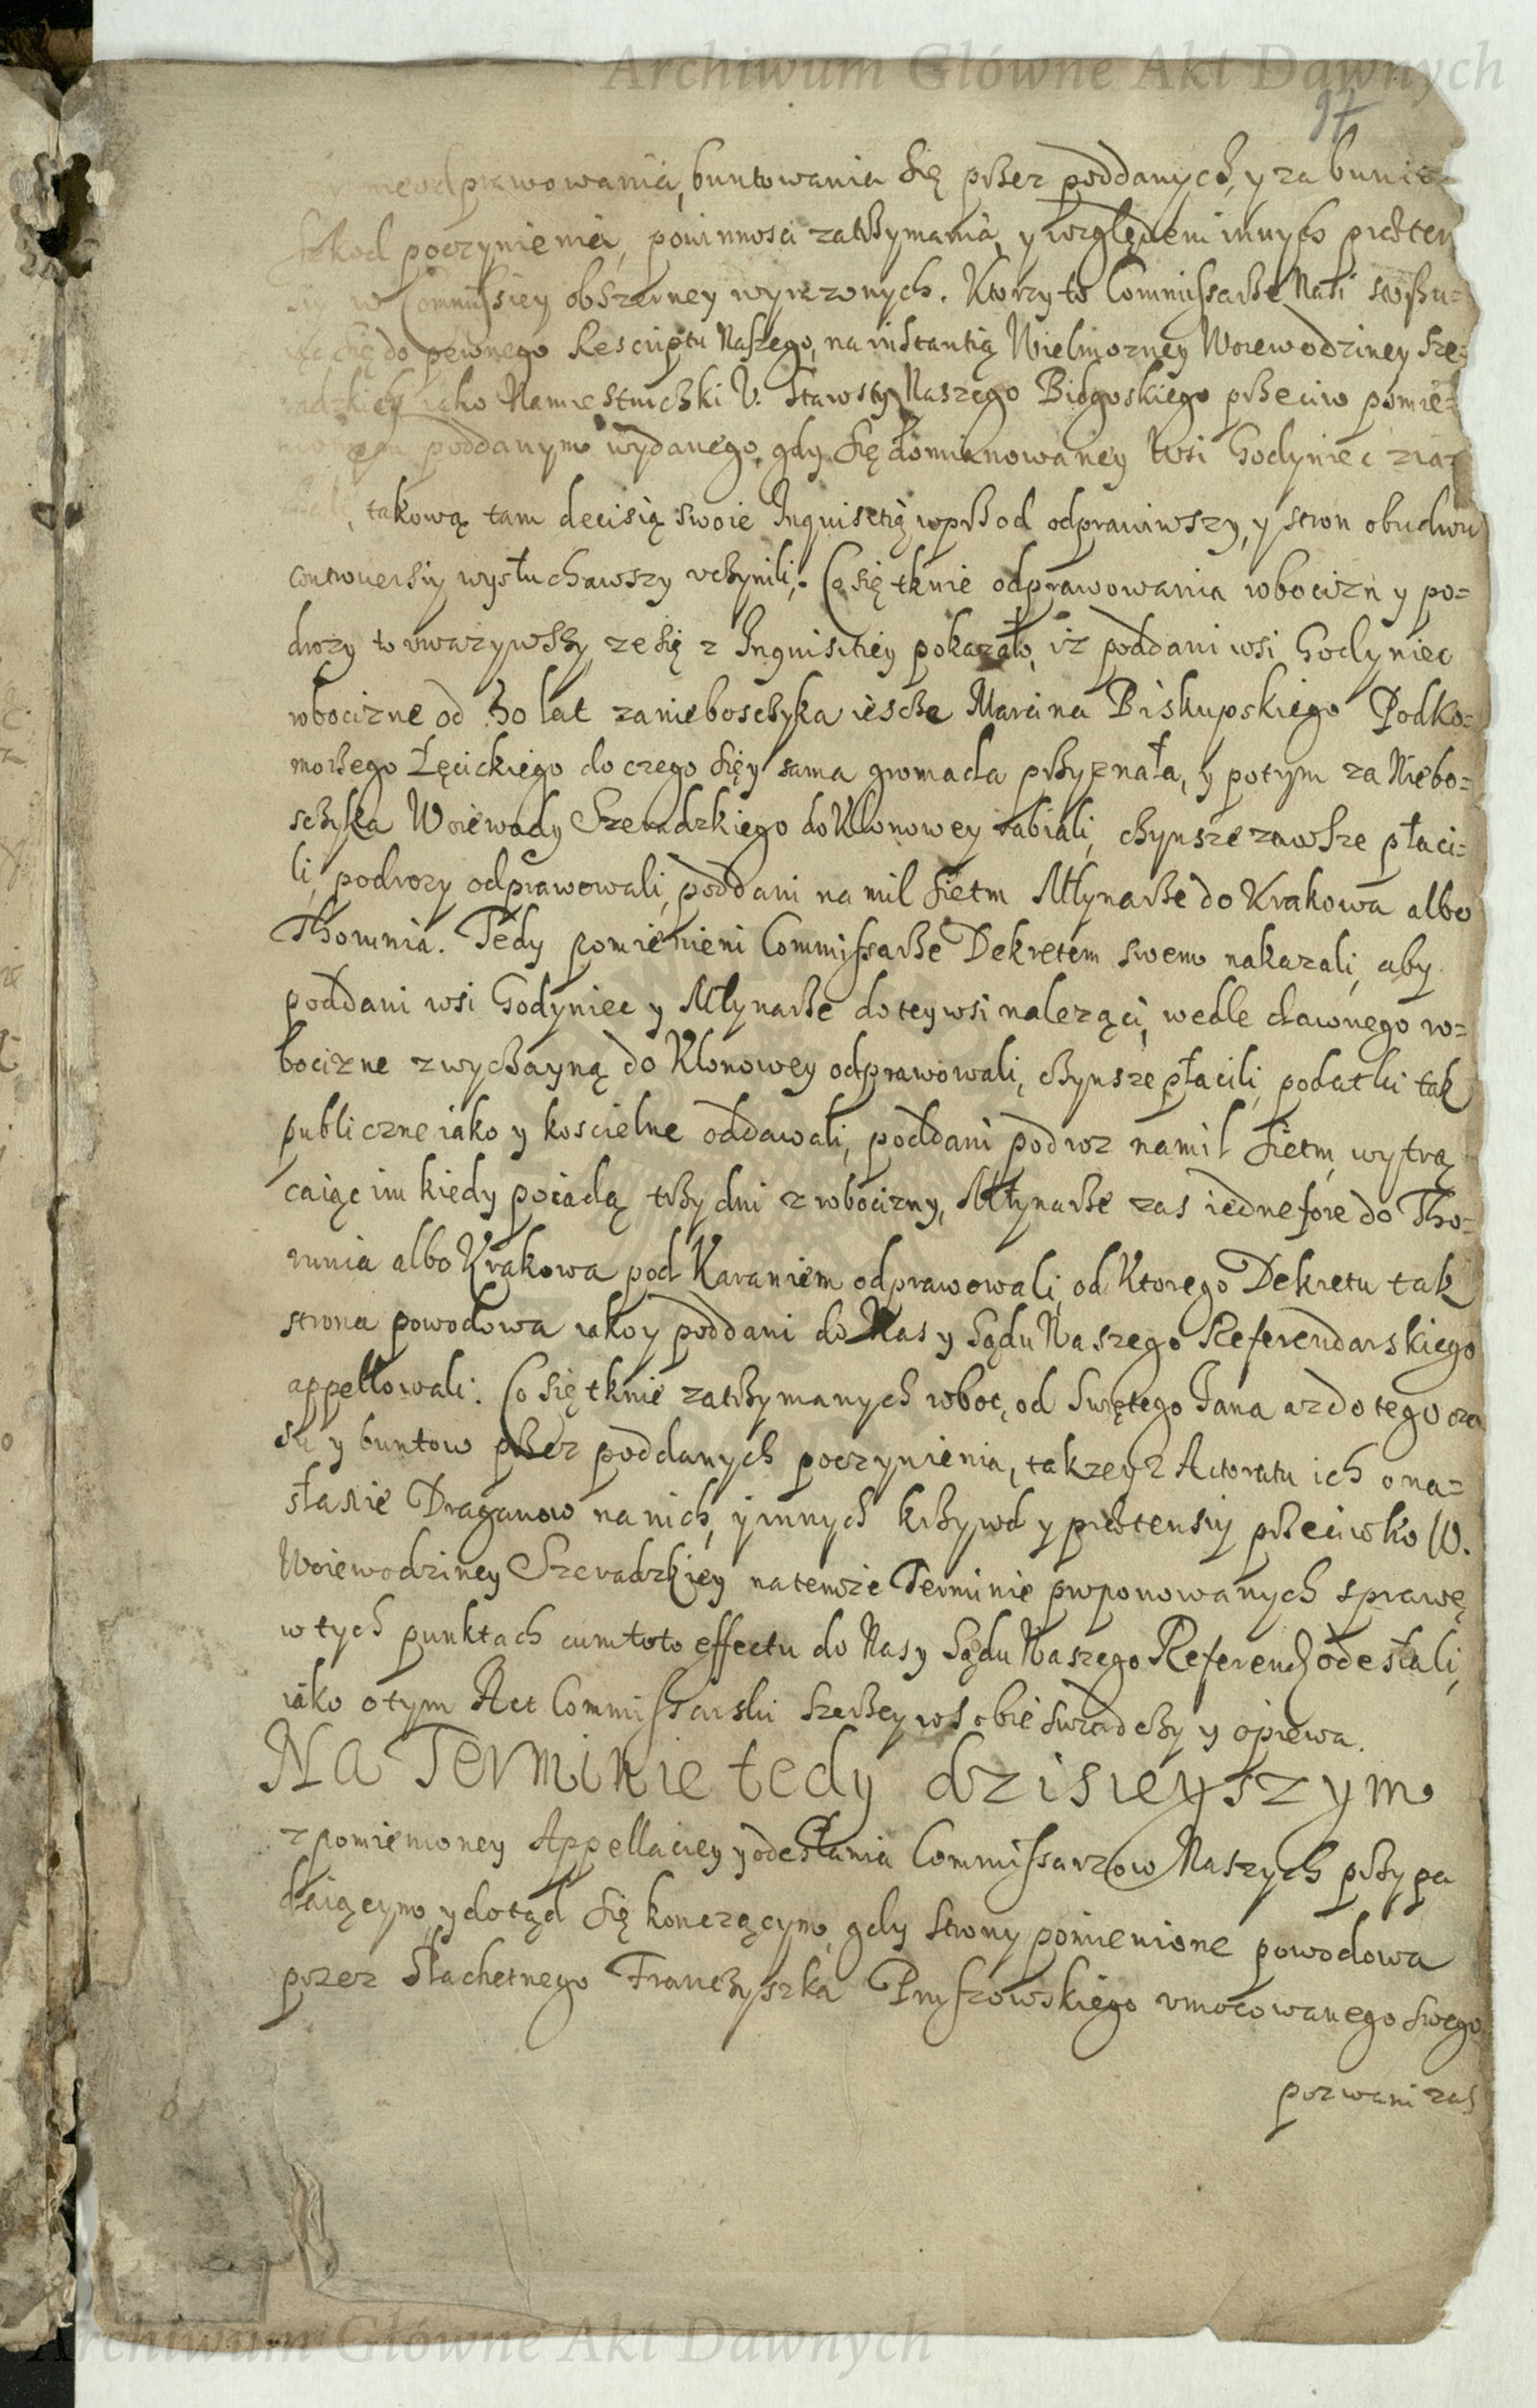 Archiwum Główne Akt Dawnych
97
nieodprawowania, buntowania się przez poddanych, y za bunto
szkod poczynienia, powinnosci zatrzymania, y względem innych praeten
w Commissiey obszerney wyrazonych. Ktorzy to Commissarze Nasi stosu=
iąc się do pewnego Rescriptu Naszego, na instantią Wielmozney Woiewodziney Sze=
radzkiey iako Namiestniczki U. Starosty Naszego Bidgoskiego przeciw pomie=
poddanym wydanego, gdy się do mianowaney Wsi Godyniec ziac
takową tam decisią swoie Inquisitią wprzod odprawiwszy, y stron obudwu
controuersiy wysłuchawszy vczynili. Co się tknie odprawowania robocizn y po=
drozy to vwazywszy ze się z Inquisitiey pokazało, iz poddani wsi Godyniec
robocizne od 30 lat za nieboszczyka ieszcze Marcina Biskupskiego Podko=
morzego Łęcickiego do czego się y sama gromada przyznała, y potym za Niebo=
szczyka Woiewody Szeradzkiego do Klonowey rabiali, czynsze zawsze płaci=
li, podrozy odprawowali, poddani na mil siedm Młynarze do Krakowa albo
Thorunia. Tedy pomienieni Commissarze Dekretem swem nakazali, aby
poddani wsi Godyniec y Młynarze do tey wsi nalezący, wedle dawnego ro=
bocizne zwyczayną do Klonowey odprawowali, czynsze płacili, podatki tak
publiczne iako y koscielne oddawali, poddani podroz na mil siedm, wytrą
caiąc im kiedy poiadą trzy dni z robocizny, Młynarze zas iedne fore do Tho=
runia albo Krakowa pod Karaniem odprawowali, od Ktorego Dekretu tak
strona powodowa iako y poddani do Nas y Sądu Naszego Referendarskiego
appellowali. Co się tknie zatrzymanych robot, od Swiętego Jana az do tego cza
su y buntow przez poddanych poczynienia, takze y z Actoratu ich o na=
słanie Draganow na nich, y innych krzywd y praetensiy przeciwko W.
Woiewodziney Szeradzkiey na temze Terminie proponowanych sprawę
w tych punktach cum toto effectu do Nas y Sądu Naszego Referend odesłali,
iako o tym Act Commissarski szerzey w sobie swiadczy y opiewa.
Na Terminie tedy dzisieyszym
z pomienioney Appellaciey y odesłania Commissarzow Naszych przypa
daiącym y dotąd się konczącym, gdy strony pomienione powodowa
przez Slachetnego Franciszka Pruszowskiego vmocowanego swego
pozwani zas
Archiwum Główne Akt Dawnych